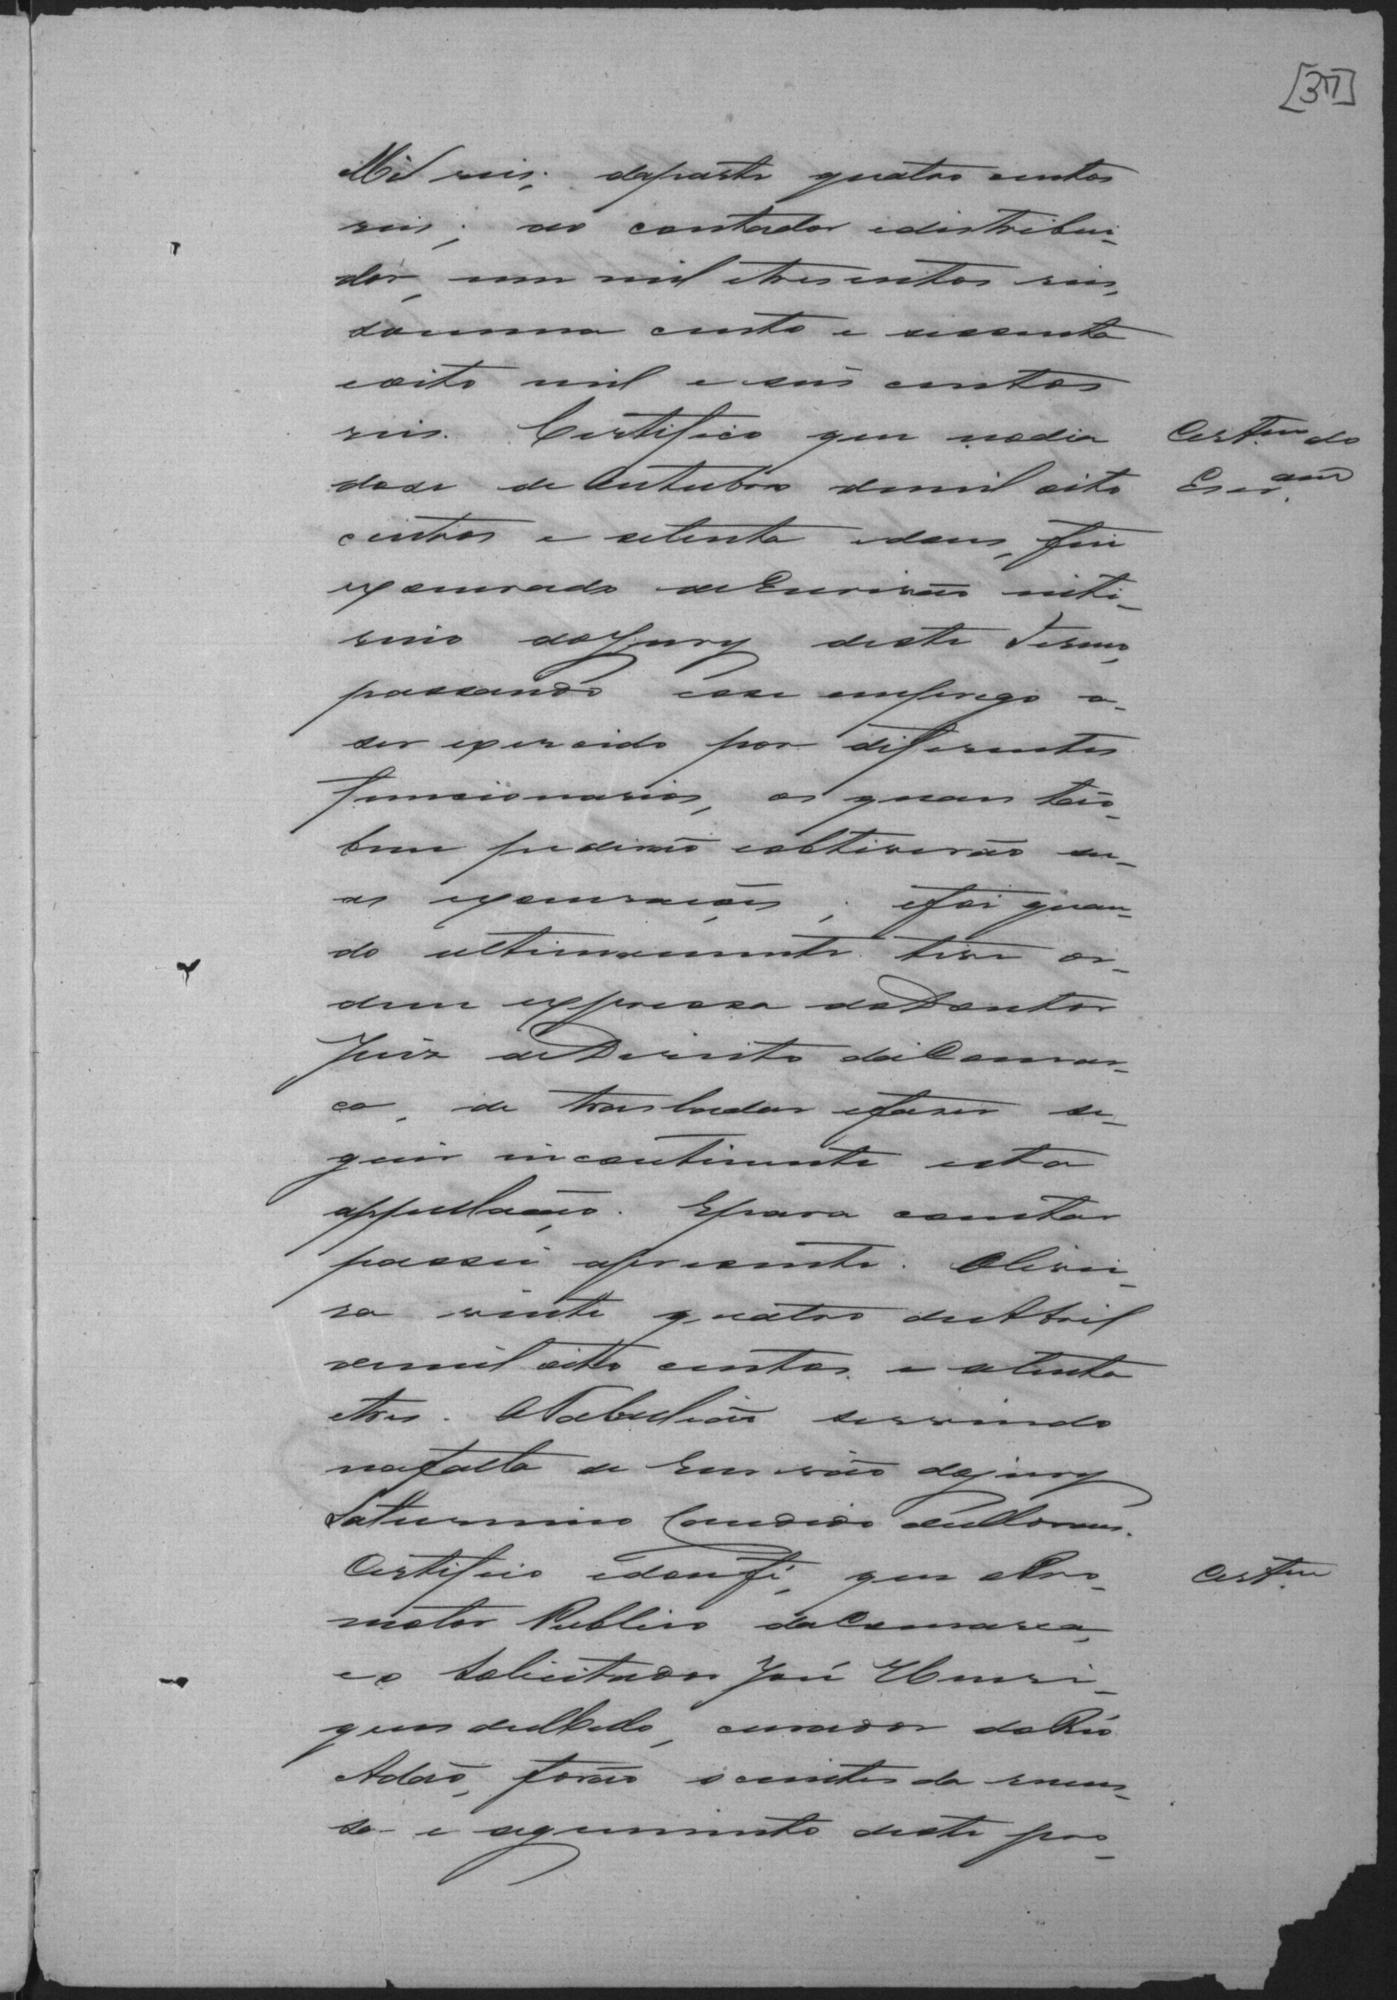 [37]
Mil reis; daparte quatro centos
reis; ao contador edistribui-
dor, um mil etresentos reis,
somma cento e sessenta
eoito mil e seis centos
reis. Certifico que nodia
dose de Outubro demil oito
centos e setenta edous, fui
exonerado deEscrivão inte-
rino doJury deste Termo,
passando esse emprego a-
ser exercido por diferentes
funcionarios, os quaes tão-
bem pedirão eobtiverão su-
as exonerações; efoi quan-
do ultimamente tive or-
dem expressa doDoutor
Juiz deDireito daComar-
ca, de trasladar efaser se-
guir incontinente esta
appellação. Epara constar
passei apresente. Olivei-
ra vinte quatro deAbril
demil oito centos e setenta
etres. OTabelião servindo
nafalta de Escrivão dojury
Saturnino Candido deMoraes.
Certifico edoufé, que oPro-
motor Publico daComarca,
eo Solicitador José Henri-
ques deMello, curador doRéo
Adão, forão scientes da remes-
sa e seguimento deste pro-
Cert.am do
Escr.am
Cert.am